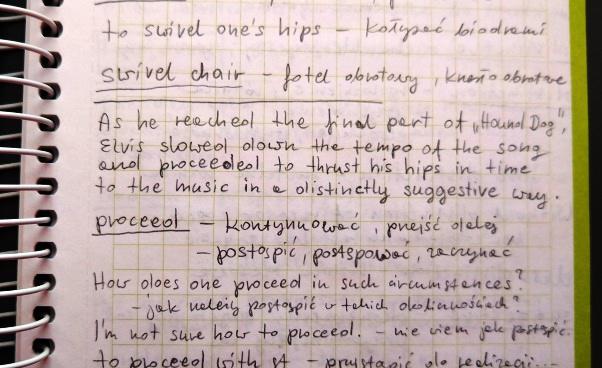 to swivel one's hips – kołysać biodrami
swivel chair – fotel obrotowy, krzesło obrotowe
As he reached the final part of „Hound Dog",
Elvis slowed down the tempo of the song
and proceeded to thrust his hips in time
to the music in a distinctly suggestive way.
proceed – kontynuować, przejść dalej
– postąpić, postępować, zaczynać
How does one proceed in such circumstances?
– jak należy postąpić w takich okolicznościach?
I'm not sure how to proceed. – nie wiem jak postąpić.
to proceed with st – przystąpić do realizacji...